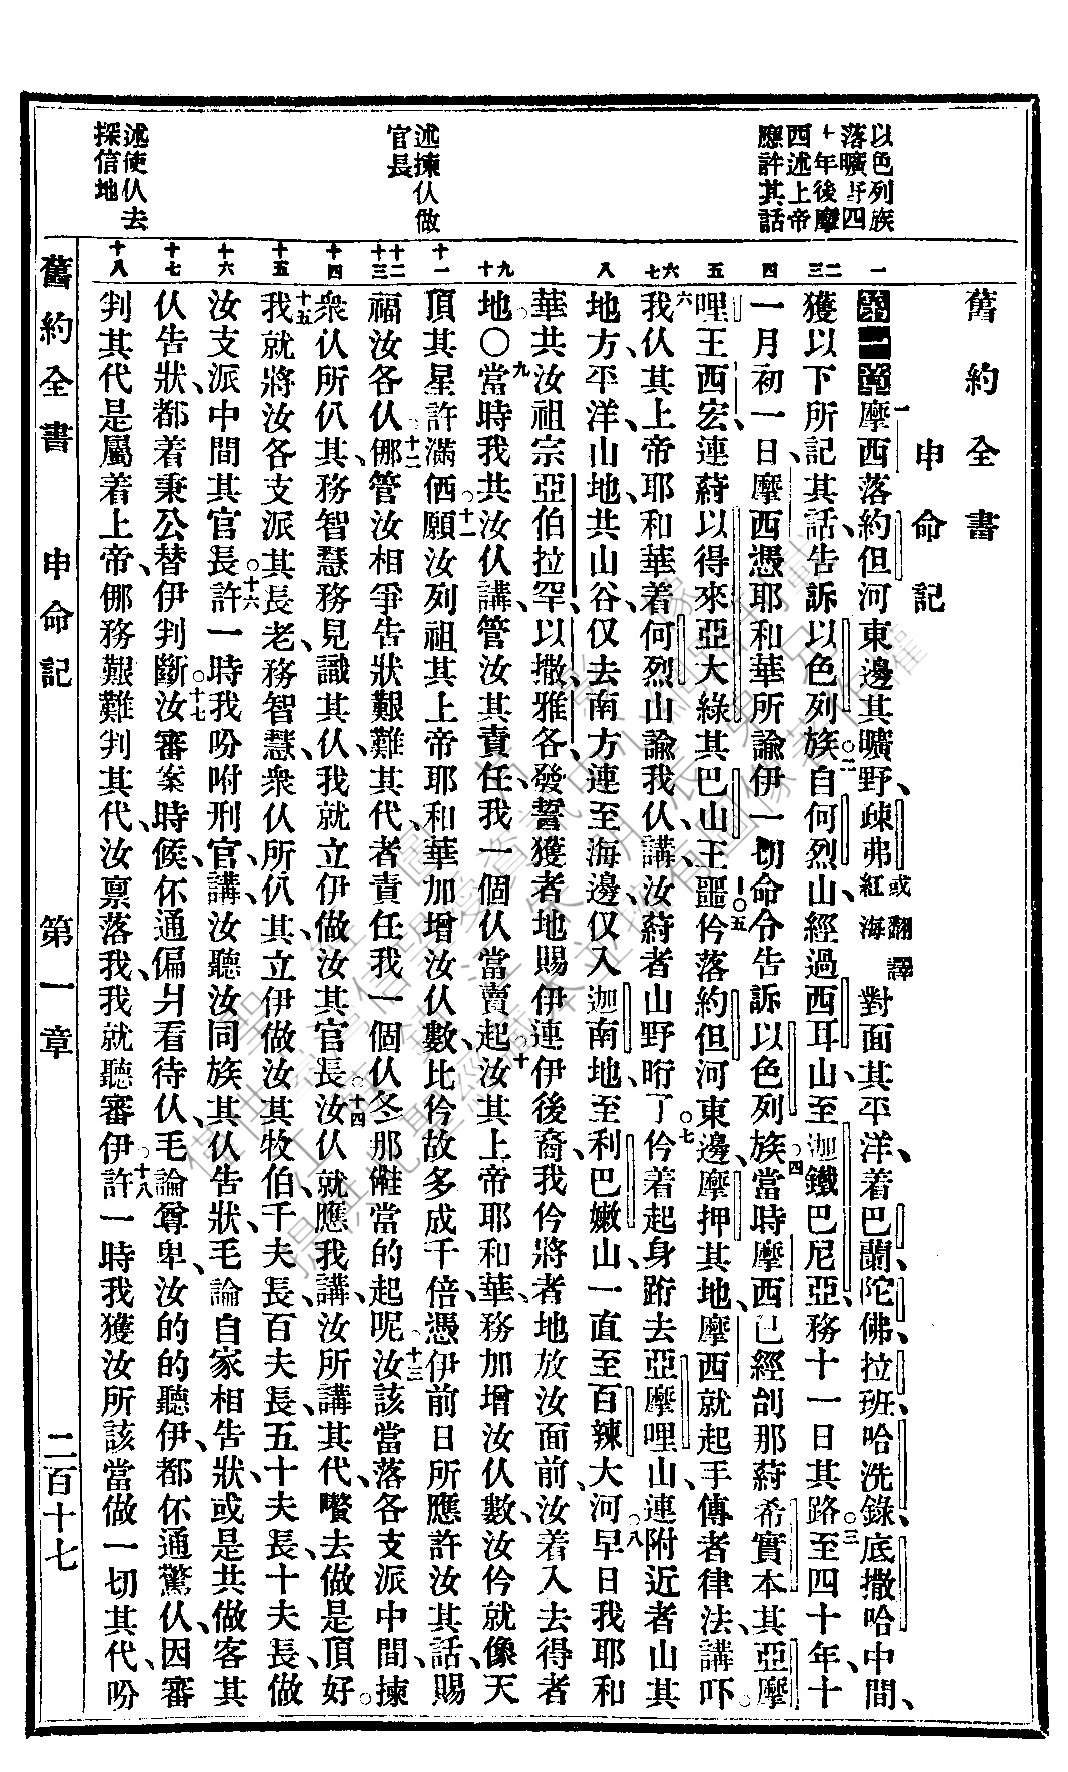 舊約全書
申命記
以色列族
落曠野四
十年後摩
西述上帝
應許其話
述揀仈做
官長
述使仈去
探信地
一
二
三
四
五
六
七
八
九
十
十一
十二
十三
十四
十五
十六
十七
十八
第一章 一摩西落約但河東邊其曠野、疎弗或翻譯紅海對面其平洋、着巴蘭、陀佛、拉班、哈洗錄、底撒哈中間、
獲以下所記其話、告訴以色列族。二自何烈山、經過西耳山、至迦鐵巴尼亞、務十一日其路。三至四十年十
一月初一日、摩西憑耶和華所諭伊一切命令告訴以色列族。四當時摩西已經刣那蒶希實本其亞摩
哩王西宏、連蒶以得來亞大綠其巴山王噩。五仱落約但河東邊、摩押其地、摩西就起手傳者律法、講吓。
六我仈其上帝耶和華着何烈山諭我仈、講、汝蒶者山野㫰了。七仱着起身跡去亞摩哩山、連附近者山其
地方、平洋、山地、共山谷、仅去南方連至海邊、仅入迦南地、至利巴嫩山、一直至百辣大河。八早日我耶和
華共汝祖宗亞伯拉罕、以撒、雅各、發誓獲者地賜伊連伊後裔、我仱將者地放汝面前、汝着入去得者
地。〇九當時我共汝仈講、管汝其責任、我一個仈當賣起。十汝其上帝耶和華、務加增汝仈數、汝仱就像天
頂其星許滿。十一仴願汝列祖其上帝耶和華加增汝仈數、比仱故多成千倍、憑伊前日所應許汝其話、賜
福汝各仈。十二㑚管汝相爭告狀艱難其代、者責任我一個仈冬那𠆧當的起呢。十三汝該當落各支派中間、揀
衆仈所仈其、務智慧務見識其仈、我就立伊做汝其官長。十四汝仈就應我講、汝所講其代、嚽去做是頂好。
十五我就將汝各支派其長老、務智慧、衆仈所仈其、立伊做汝其牧伯、千夫長、百夫長、五十夫長、十夫長、做
汝支派中間其官長。十六許一時我吩咐刑官、講、汝聽汝同族其仈告狀、毛論自家相告狀、或是共做客其
仈告狀、都着秉公替伊判斷。十七汝審案時候、伓通偏爿看待仈、毛論尊卑、汝的的聽伊、都伓通驚仈、因審
判其代是屬着上帝、㑚務艱難判其代、汝禀落我、我就聽審伊。十八許一時我獲汝所該當做一切其代、吩
舊約全書 申命記 第一章 二百十七